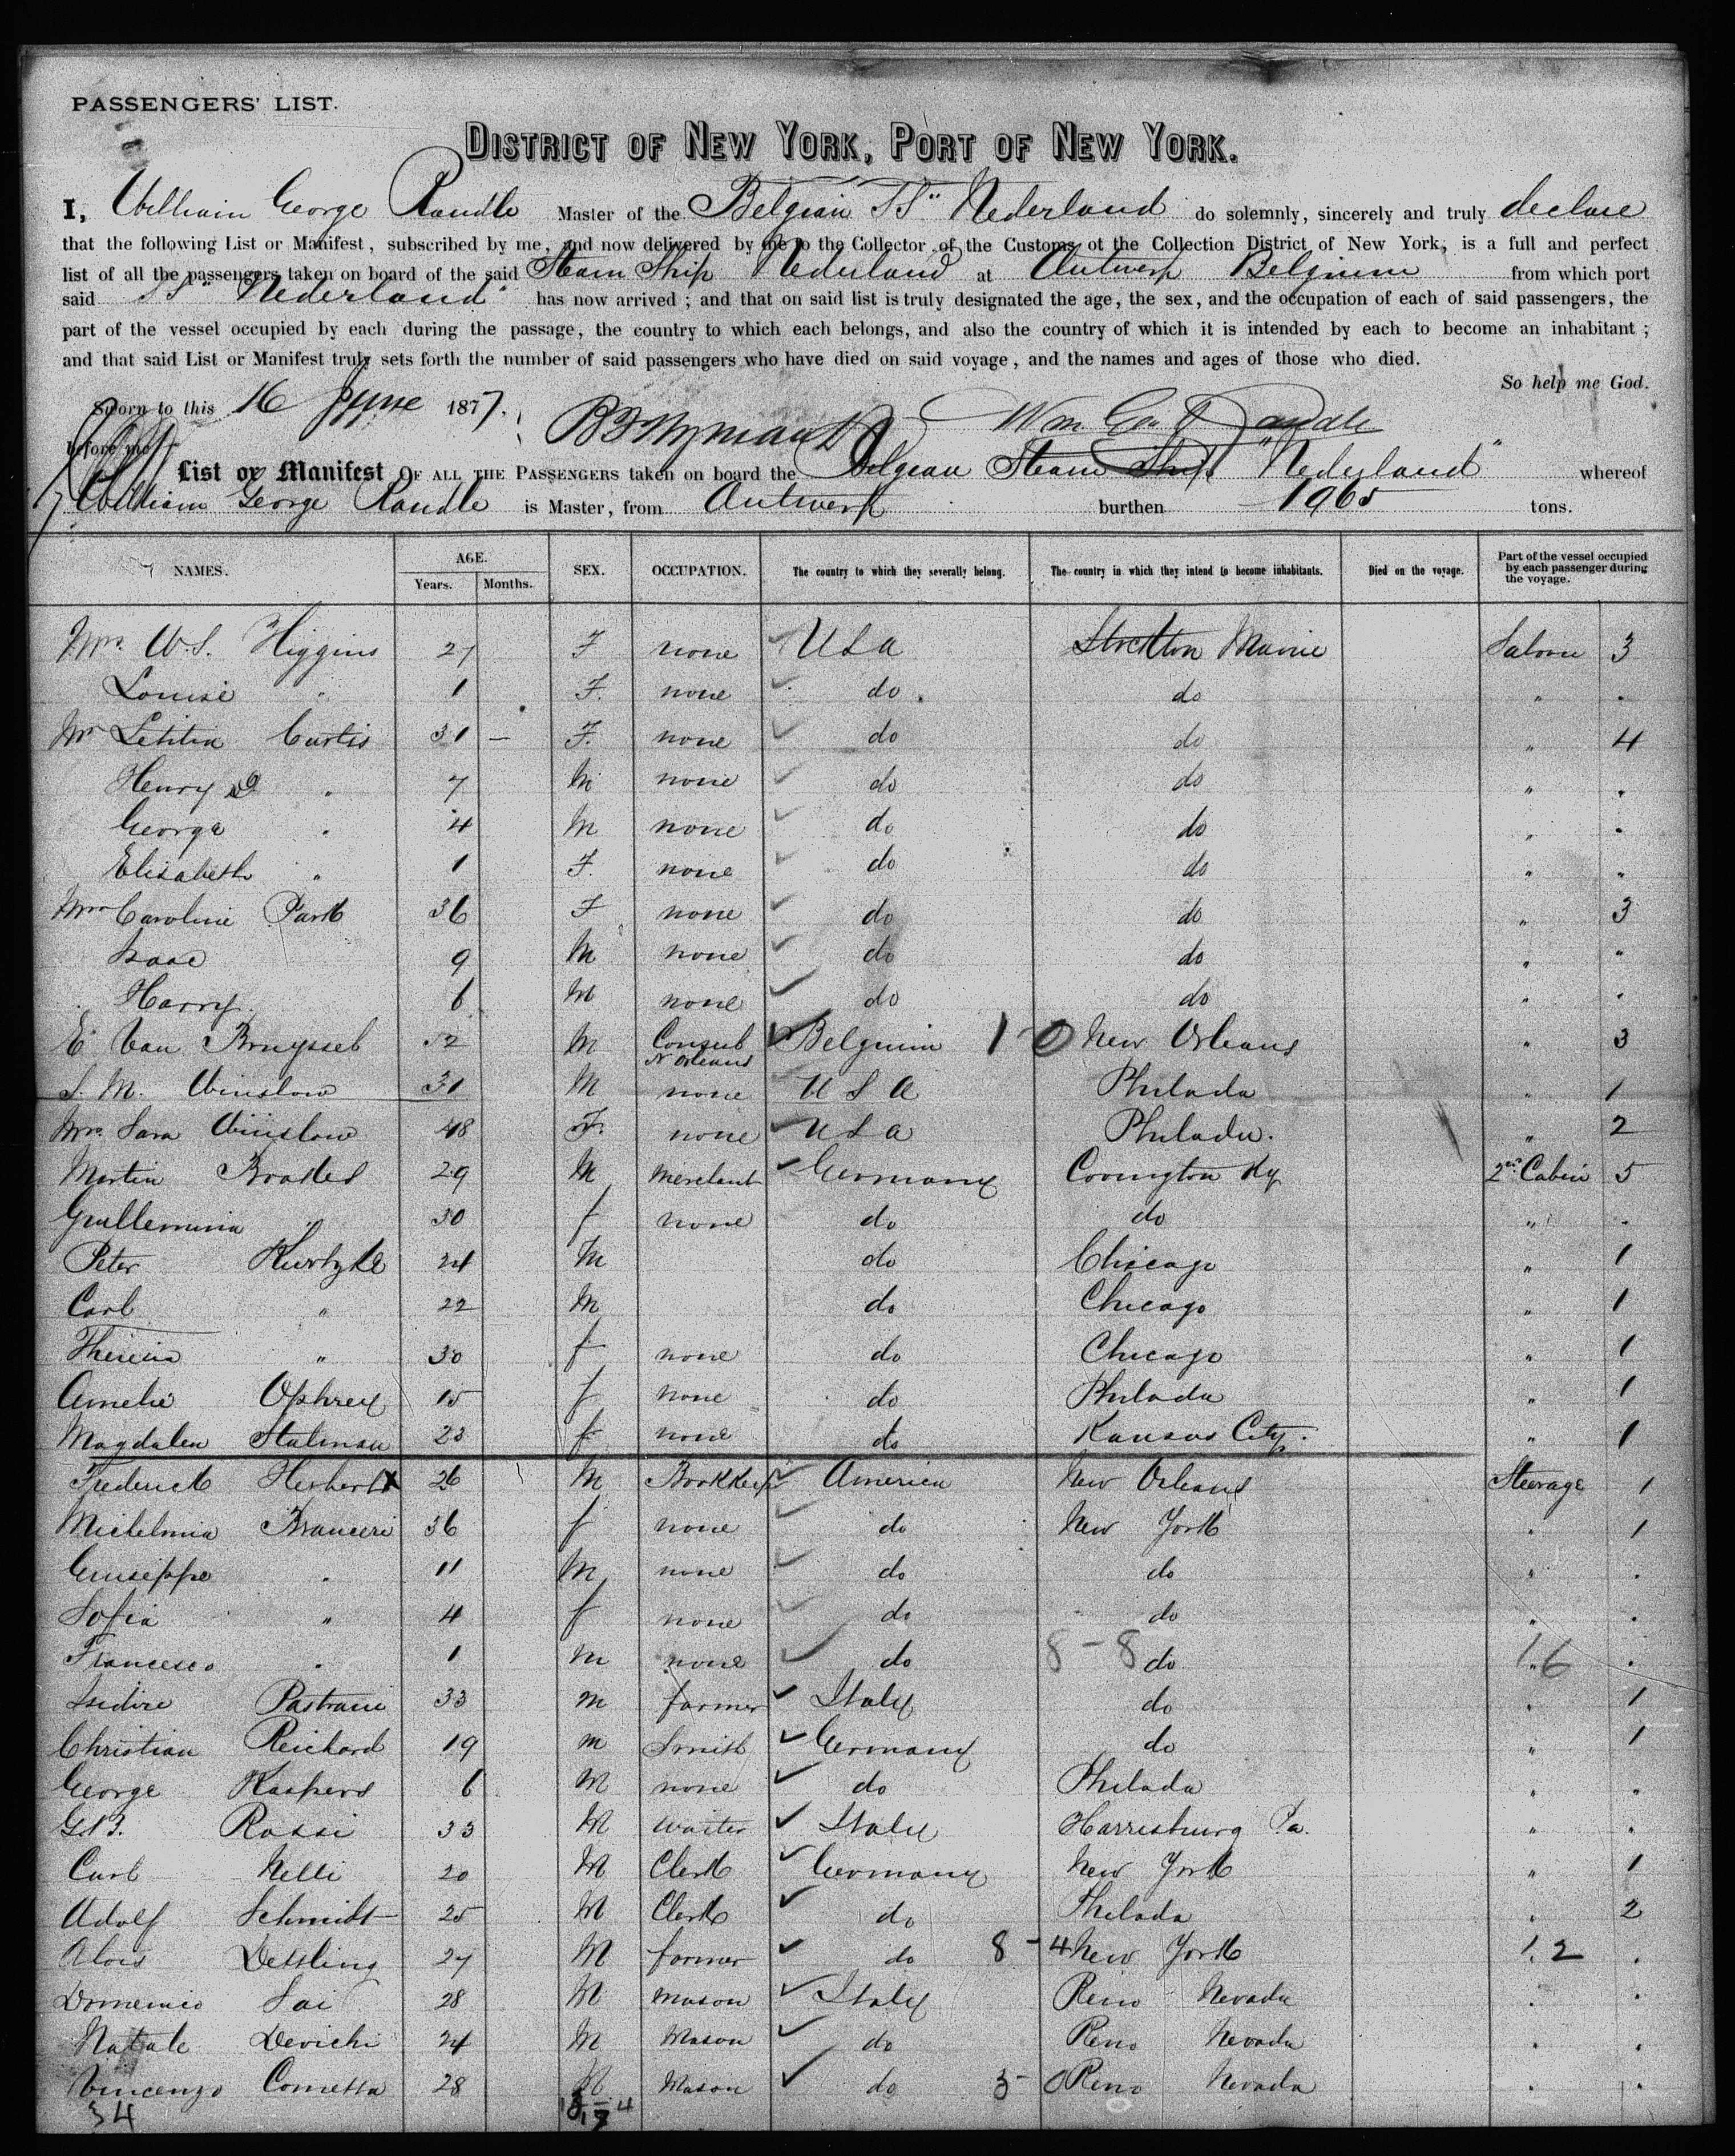 PASSENGERS' LIST.
DISTRICT OF NEW YORK, PORT OF NEW YORK.
I, William George Randle Master of the Belgian SS" Nederland do solemnly, sincerely and truly declare
that the following List or Manifest, subscribed by me, and now delivered by me to the Collector of the Customs ot the Collection District of New York, is a full and perfect
list of all the passengers taken on board of the said Steam Ship Nederland at Antwerp Belgium from which port
said SS" Nederland" has now arrived ; and that on said list is truly designated the age, the sex, and the occupation of each of said passengers, the
part of the vessel occupied by each during the passage, the country to which each belongs, and also the country of which it is intended by each to become an inhabitant ;
and that said List or Manifest truly sets forth the number of said passengers who have died on said voyage, and the names and ages of those who died.
So help me God.
Sworn to this 16 June 1877. Wm. Geo. Randle
before me
List or Manifest OF ALL THE PASSENGERS taken on board the Belgian Steam Ship "Nederland" whereof
William George Randle is Master, from Antwerp burthen 1965 tons.
NAMES. AGE. Years. Months. SEX. OCCUPATION. The country to which they severally belong. The country in which they intend to become inhabitants. Died on the voyage. Part of the vessel occupied by each passenger during the voyage.
Mrs. W.S. Higgins 27 F none USA Stockton Maine Saloon 3
Louise " 1 F. none do do " "
Mrs Letitia Curtis 31 — F. none do do " 4
Henry " 7 M none do do " "
George " 4 M none do do " "
Elisabeth " 1 F. none do do " "
Mrs Caroline Park 36 F none do do " 3
Isaac 9 M none do do " "
Harry 6 M none do do " "
E Van Bruyssel 52 M Consul N Orleans Belgium 1-0 New Orleans " 3
S. M. Winslow 31 M none U S A Philada " 1
Mrs. Sara Winslow 48 F. none U S A Philada. " 2
Martin 29 M Merchant Germany Covington Ky 2nd Cabin 5
" 30 f none do do " "
Peter 24 M do Chicago " 1
Carl " 22 M do Chicago " 1
" 30 f none do Chicago " 1
Amelie 15 f none do Philada " 1
Magdalen Stalman 23 f none do Kansas City. " 1
Frederick Herbert X 26 M Bookkeep America New Orleans Steerage 1
36 f none do New York " 1
Giuseppe " 11 M none do do " "
Sofia " 4 f none do do " "
Francesco " 1 M none do 8-8 do 1.6 "
Isidore 33 m farmer Italy do " 1
Christian Reichard 19 m Smith Germany do " 1
George Kaspers 6 M none do Philada " "
G.B. Rossi 33 M Waiter Italy Harrisburg Pa. " "
Carl Nelli 20 M Clerk Germany New York " 1
Adolf Schmidt 25 M Clerk do Philada " 2
Alois Dettling 27 M farmer do 8-4 New York 1.2 "
Domenico Sai 28 M Mason Italy Reno Nevada " "
Natale Devichi 24 M Mason do Reno Nevada " "
Vincenzo Cometta 28 M Mason do 3-0 Reno Nevada " "
34